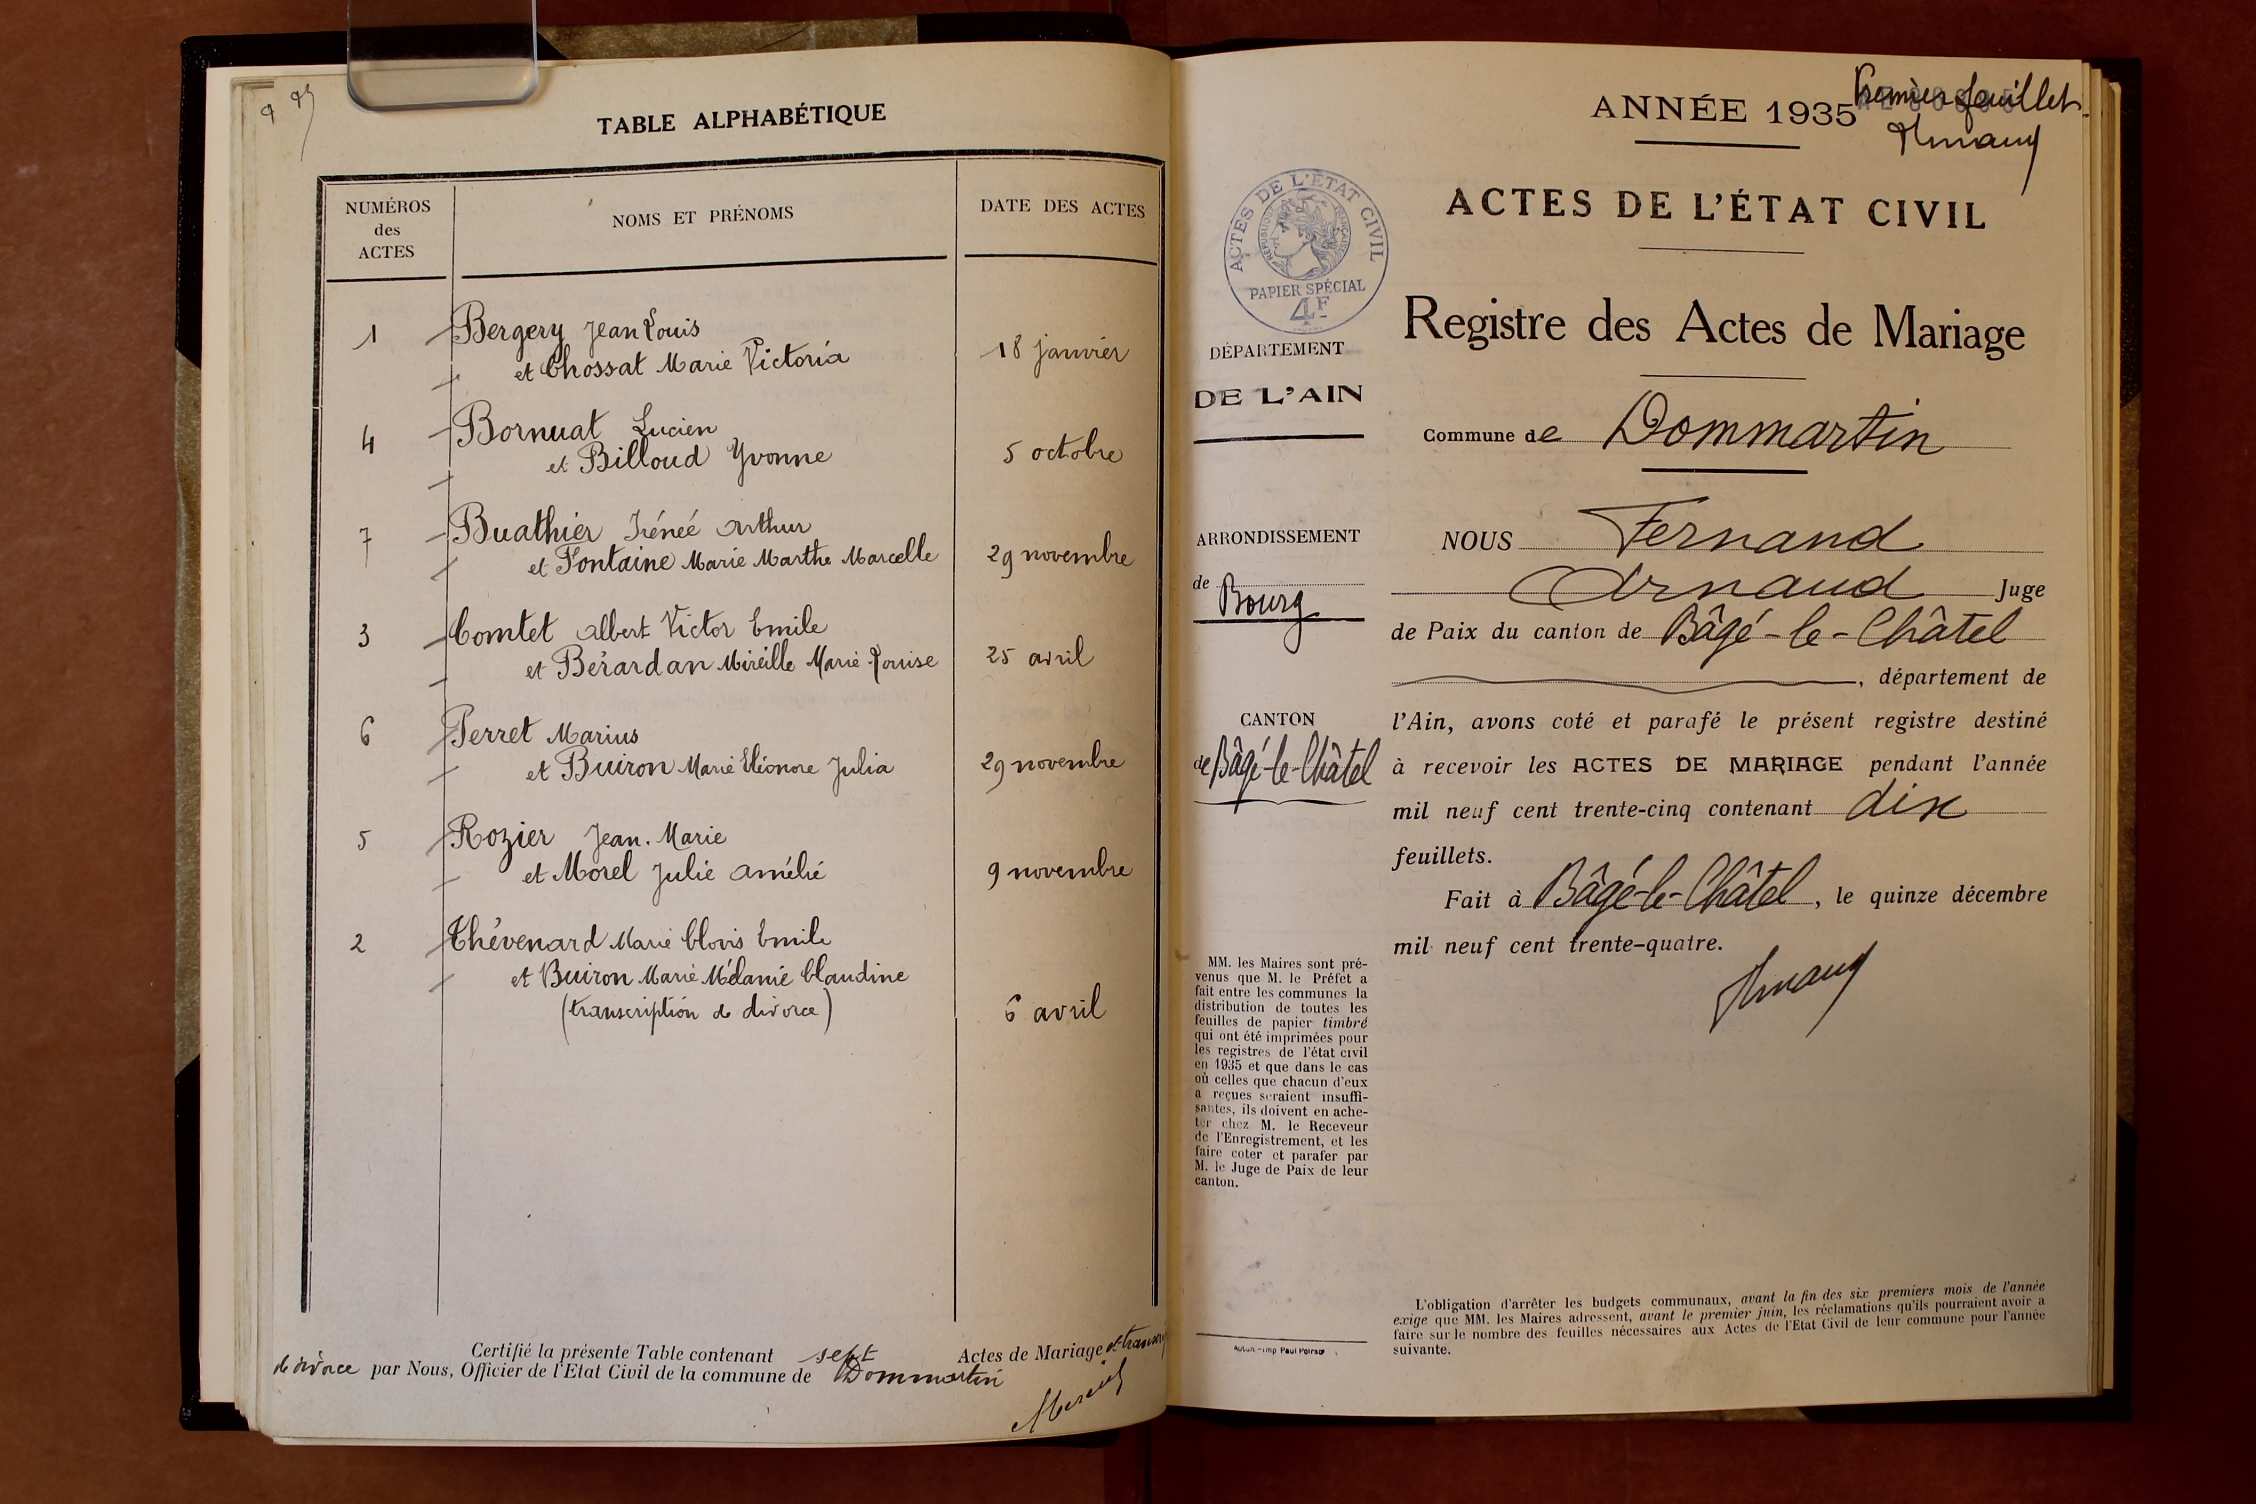 TABLE ALPHABÉTIQUE
NUMÉROS
des
ACTES
NOMS ET PRÉNOMS
DATE DES ACTES
1 Bergery Jean Louis
et Chossat Marie Victoria 18 janvier
4 Bornuat Lucien
et Billoud Yvonne 5 octobre
7 Buathier Irénéé Arthur
et Fontaine Marie Marthe Marcelle 29 novembre
3 Comtet Albert Victor Emile
et Bérardan Mireille Marie Louise 25 avril
6 Perret Marius
et Buiron Marie Eléonore Julia 29 novembre
5 Rozier Jean. Marie
et Morel Julie Amélie 9 novembre
2 Thévenard Marie Clovis Emile
et Buiron Marie Mélanie Claudine
(transcription de divorce) 6 avril
Certifié la présente Table contenant sept Actes de Mariage et
de divorce par Nous, Officier de l'Etat Civil de la commune de Dommartin
ANNÉE 1935
Premier feuillet
Arnaud
ACTES DE L'ÉTAT CIVIL
ACTES DE L'ÉTAT CIVIL
RÉPUBLIQUE FRANÇAISE
PAPIER SPÉCIAL
4F
Registre des Actes de Mariage
DÉPARTEMENT
DE L'AIN
Commune de Dommartin
ARRONDISSEMENT
de
Bourg
CANTON
de Bâgé-le-Châtel
NOUS Fernand
Arnaud Juge
de Paix du canton de Bâgé-le-Châtel
, département de
l'Ain, avons coté et parafé le présent registre destiné
à recevoir les ACTES DE MARIAGE pendant l'année
mil neuf cent trente-cinq contenant dix
feuillets.
Fait à Bâgé-le-Châtel, le quinze décembre
mil neuf cent trente-quatre.
Arnaud
MM. les Maires sont pré-
venus que M. le Préfet a
fait entre les communes la
distribution de toutes les
feuilles de papier timbré
qui ont été imprimées pour
les registres de l'état civil
en 1935 et que dans le cas
où celles que chacun d'eux
a reçues seraient insuffi-
santes, ils doivent en ache-
ter chez M. le Receveur
de l'Enregistrement, et les
faire coter et parafer par
M. le Juge de Paix de leur
canton.
L'obligation d'arrêter les budgets communaux, avant la fin des six premiers mois de l'année
exige que MM. les Maires adressent, avant le premier juin, les réclamations qu'ils pourraient avoir a
faire sur le nombre des feuilles nécessaires aux Actes de l'Etat Civil de leur commune pour l'année
suivante.
Autun.-Imp Paul Poirson